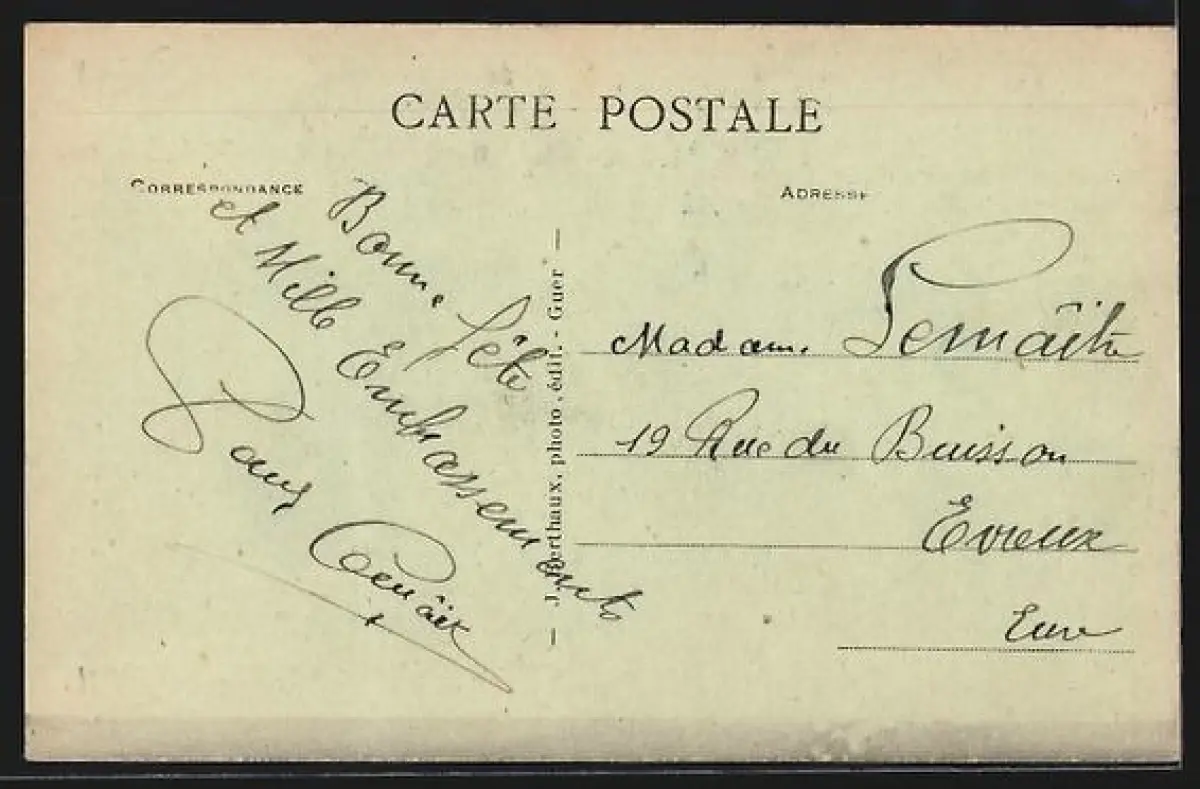 CARTE POSTALE
CORRESPONDANCE
Bonne fête
et Mille Embrassements
J. Berthaux, photo. édit. - Guer
ADRESSE
Madame Lemâitre
19 Rue du Buisson
Evreux
Eure